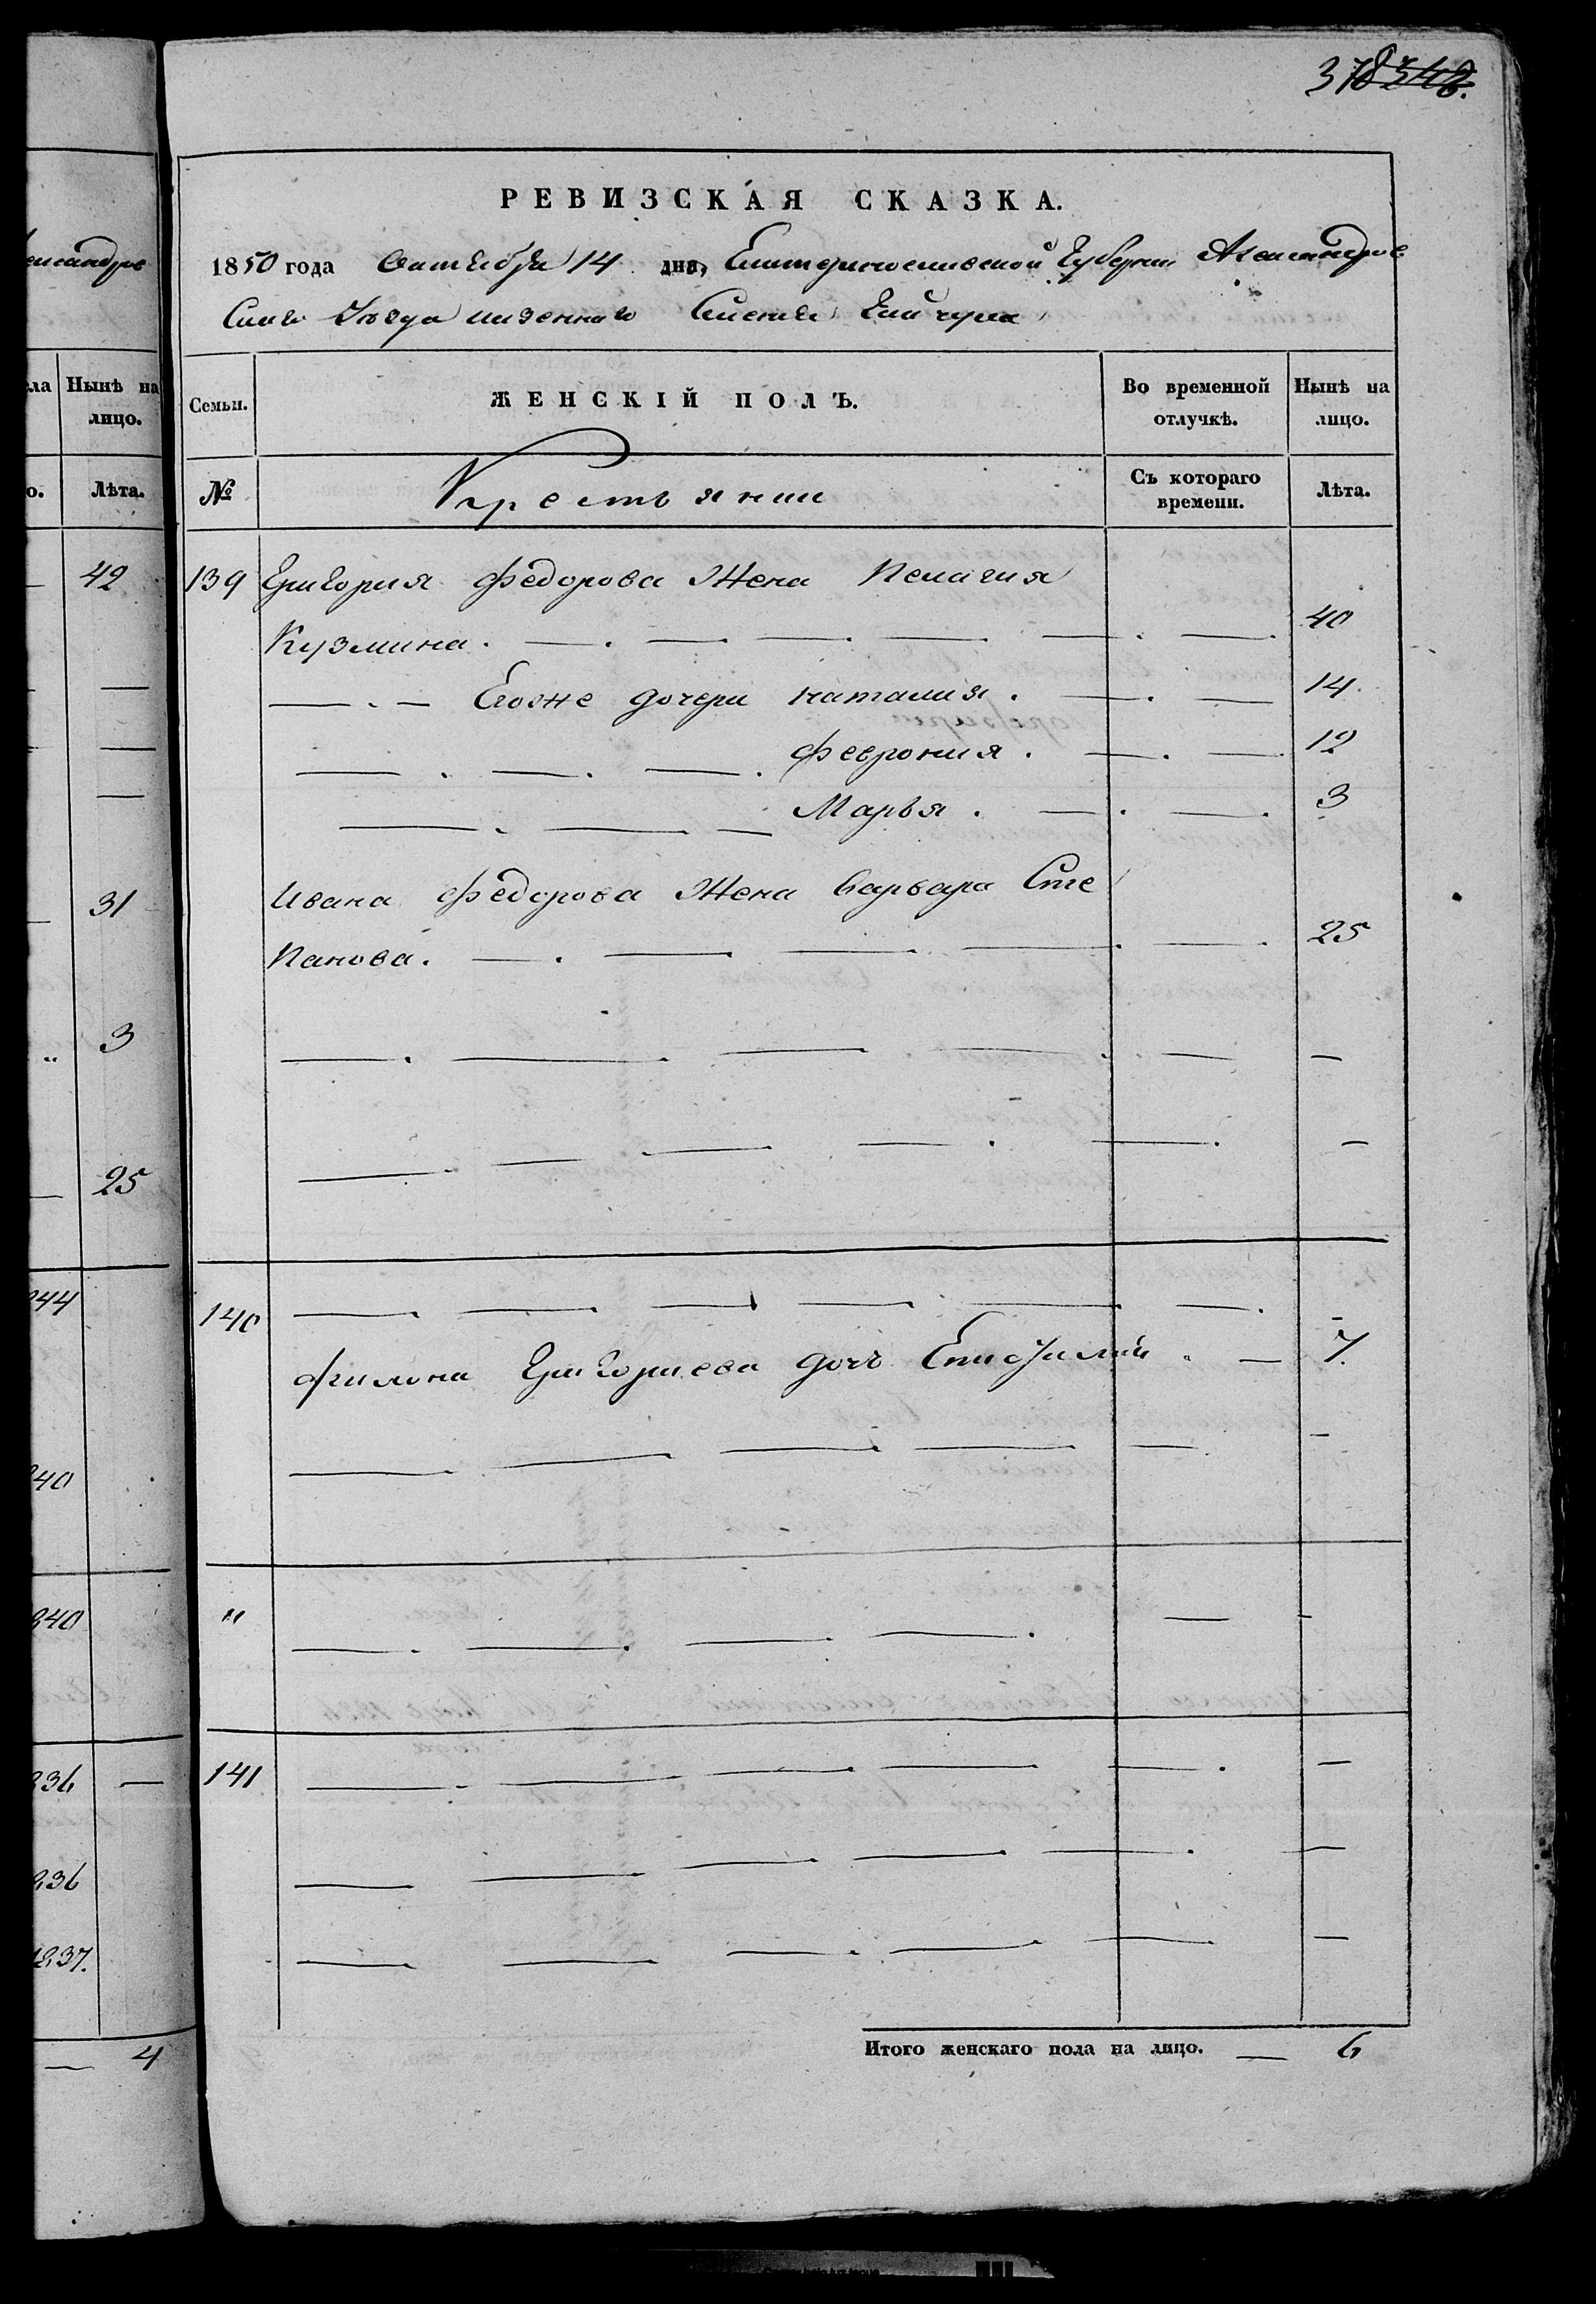 378 348.
РЕВИЗСКАЯ СКАЗКА.
1850 года Сентября 14 дня, Екатеринославской Губернии Александров
Скаго Уезда казеннаго Селения
Семьи.
ЖЕНСКІЙ ПОЛЪ.
Во временной отлучкѣ.
Нынѣ на лицо.
№
Крестьянки
Съ котораго времени.
Лѣта.
139 Григория Федорова Жена Пелагия
Кузмина. 40
Егоже дочери Наталия. 14
Феврония. 12
Марья. 3
Ивана Федорова Жена Варвара Сте
панова. 25
140
Филона Григориева дочь 7.
"
141
Итого женскаго пола на лицо. — 6
ександров
ла
Нынѣ на лицо.
о.
Лѣта.
42
31
" 3
25
844
840
840
836
836
1837.
4